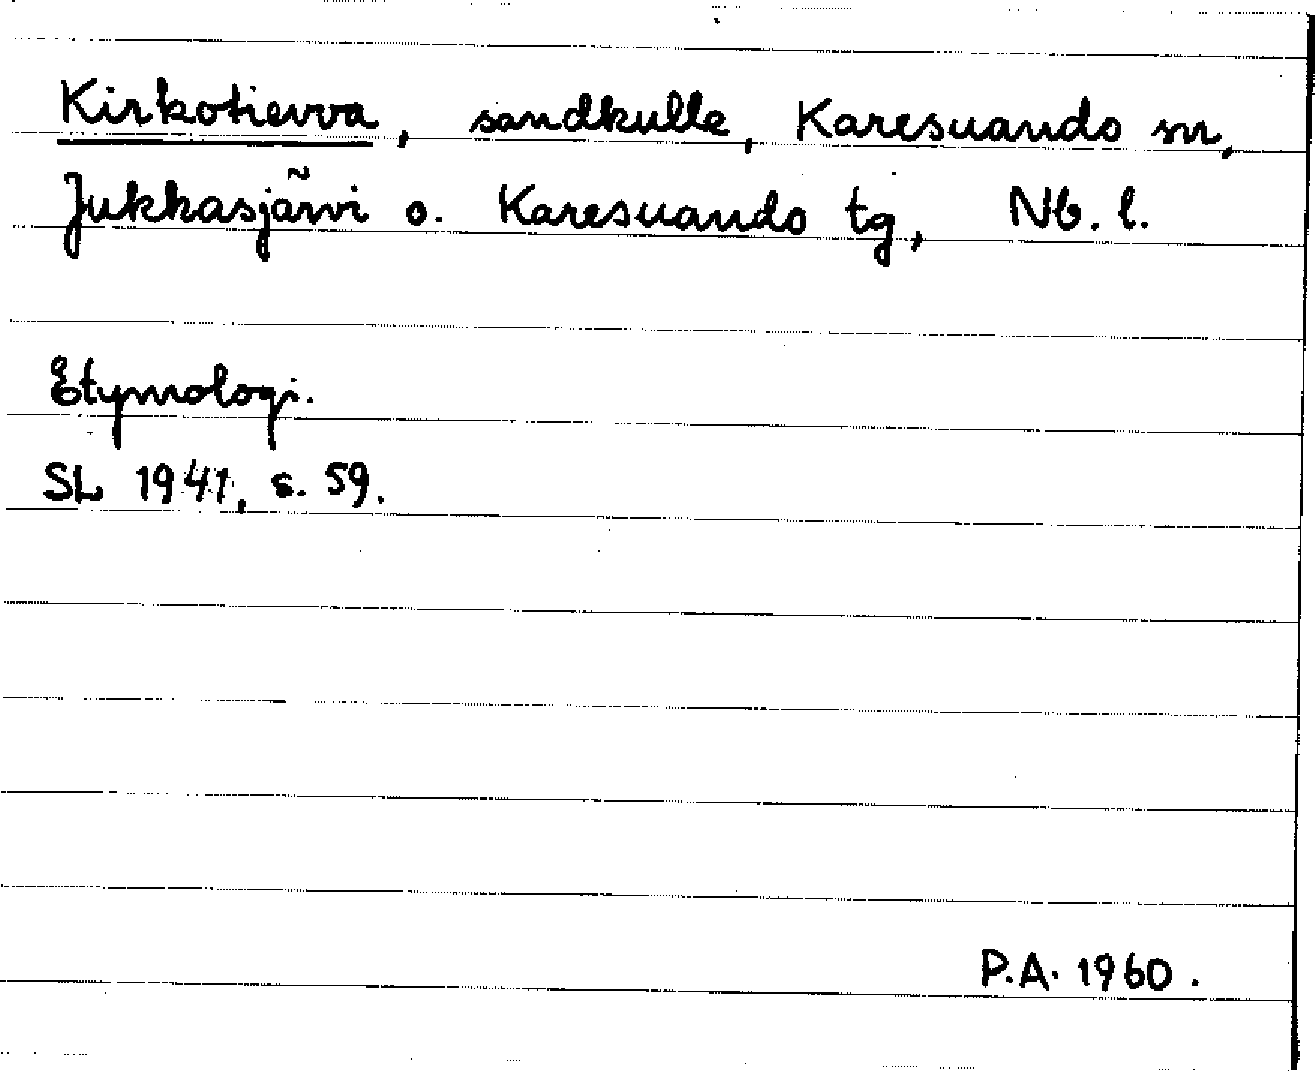 Kirkotievva, sandkulle, Karesuando sn,
Jukkasjärvi o. Karesuando tg, Nb. l.
Etymologi.
SL 1941, s. 59.
P.A. 1960.